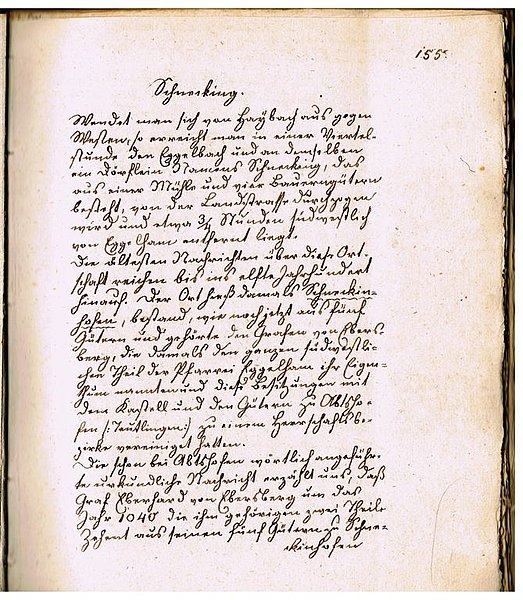 155.
Schnecking.
Wendet man sich von Haybach aus gegen
Westen, so erreicht man in einer Viertel-
stunde den Eggelbach und an demselben
ein Dörflein Namens Schnecking, das
aus einer Mühle und vier Bauerngütern
besteht, von der Landstrasse durchzogen
wird und etwa 3/4 Stunden südwestlich
von Eggelham entfernt liegt.
Die ältesten Nachrichten über diese Ort-
schaft reichen bis ins elfte Jahrhundert
hinauf. Der Ort hieß damals Schneckin-
hofen, bestand, wie noch jetzt aus fünf
Gütern und gehörte den Grafen von Ebers-
berg, die damals den ganzen südwestli-
chen Theil der Pfarrei Eggelham ihr Eigen-
thum nannten und diese Besitzungen mit
dem Kastell und den Gütern zu Abtsho-
fen /:Teutlingen:/ zu einem Herrschaftsbe-
zirke vereiniget hatten.
Die schon bei Abtshofen wörtlich angeführ-
te urkundliche Nachricht erzählt uns, daß
Graf Eberhard von Ebersberg um das
Jahr 1040 die ihm gehörigen zwei Theile
Zehent aus seinen fünf Gütern zu Schne-
ckinhofen